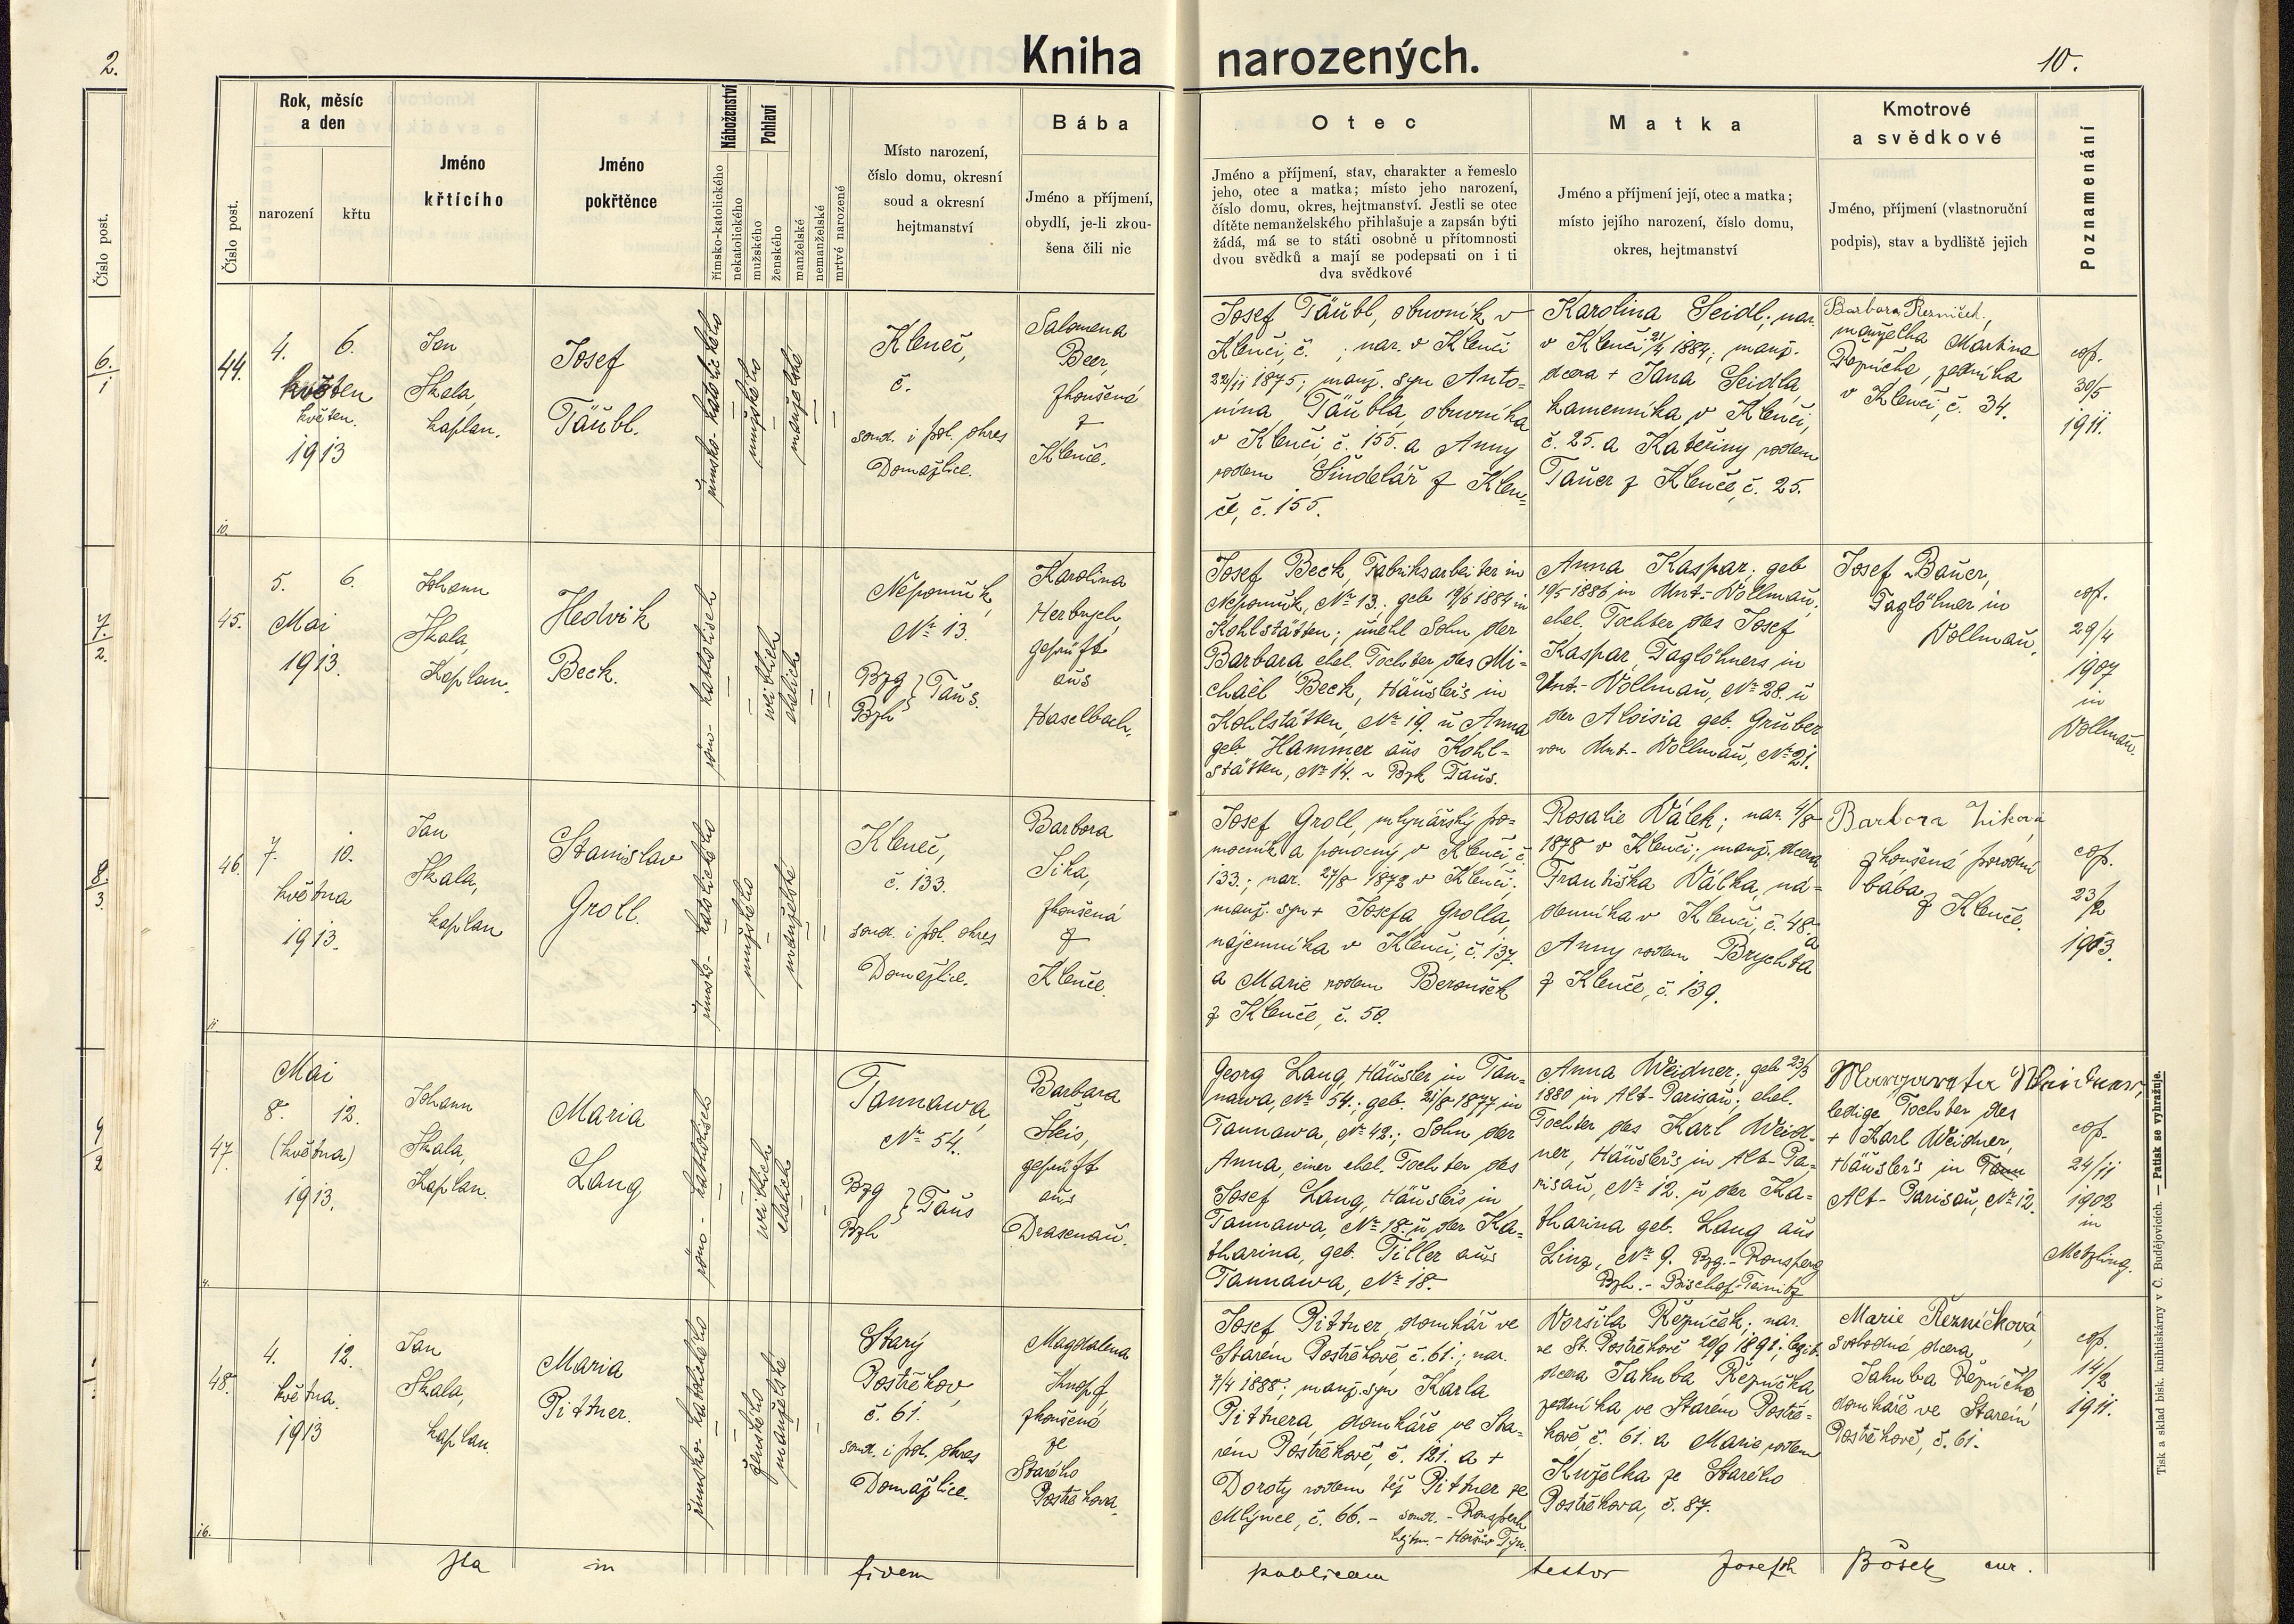 2.
Kniha narozených.
10.
Číslo post.
6/1
7./2.
8/3.
9/2
Číslo post.
Rok, měsíc
a den
narození
křtu
Jméno
křtícího
Jméno
pokřtěnce
Náboženství
římsko-katolického
nekatolického
Pohlaví
mužského
ženského
manželské
nemanželské
mrtvě narozené
Místo narození,
číslo domu, okresní
soud a okresní
hejtmanství
Bába
Jméno a příjmení,
obydlí, je-li zkou-
šena čili nic
Otec
Jméno a příjmení, stav, charakter a řemeslo
jeho, otec a matka; místo jeho narození,
číslo domu, okres, hejtmanství. Jestli se otec
dítěte nemanželského přihlašuje a zapsán býti
žádá, má se to státi osobně u přítomnosti
dvou svědků a mají se podepsati on i ti
dva svědkové
Matka
Jméno a příjmení její, otec a matka;
místo jejího narození, číslo domu,
okres, hejtmanství
Kmotrové
a svědkové
Jméno, příjmení (vlastnoruční
podpis), stav a bydliště jejich
Poznamenání
44.
4. 6.
květen
květen.
1913
Jan
Skala,
kaplan.
Josef
Täubl.
římsko-katolického
mužského
manželské
Kleneč,
č.
soud. i pol. okres
Domažlice.
Salomena
Beer,
zkoušená
z
Klenče.
Josef Täubl, obuvník v
Klenči, č. ; nar. v Klenči
22/11 1875; manž. syn Anto=
nína Täubla, obuvníka
v Klenči č. 155. a Anny
rodem Šindelář z Klen=
če, č. 155.
Karolina Seidl; nar.
v Klenči 21/4 1884; manž.
dcera + Jana Seidla,
kamenníka v Klenči,
č. 25. a Kateřiny rodem
Tauer z Klenče, č. 25.
Barbora Řezníček,
manželka Martina
Řezníčka, zedníka
v Klenči, č. 34.
cop.
30/5
1911.
10.
45.
5. 6.
Mai
1913.
Johann
Skala,
Kaplan.
Hedvik
Beck.
röm-katholisch
weiblich
ehelich
Nepomuk,
No 13.
Bzg
Bzh } Taus.
Karolina
Herbrych,
geprüft
aus
Haselbach.
Josef Beck, Fabriksarbeiter in
Nepomuk, No 13.; geb. 19/6 1884 in
Kohlstätten; unehl Sohn der
Barbara ehel. Tochter des Mi=
chaël Beck, Häusler's in
Kohlstätten, No 19. u Anna
geb. Hammer aus Kohl=
stätten, No 14. ~ Bzh Taus.
Anna Kaspar; geb
19/5 1886 in Unt.-Vollmau;
ehel. Tochter des Josef
Kaspar, Taglöhners in
Unt.-Vollmau, No 28. u
der Aloisia geb. Gruber
von Unt.-Vollmau, No 21.
Josef Bauer,
Taglöhner in
Vollmau.
cop.
29/4
1907
in
Vollmau.
46.
7. 10.
května
1913.
Jan
Skala,
kaplan
Stanislav
Groll.
římsko-katolického
mužského
manželské
Kleneč,
č. 133.
soud. i pol. okres
Domažlice.
Barbora
Sika,
zkoušená
z
Klenče.
Josef Groll, mlynářský po=
mocník a ponocný v Klenči, č.
133.; nar. 27/8 1872 v Klenči;
manž. syn + Josefa Grolla,
nájemníka v Klenči, č. 137.
a Marie rodem Beroušek
z Klenče, č. 50.
Rosalie Válek; nar. 4/8
1878 v Klenči; manž. dcera
Františka Válka, ná=
denníka v Klenči, č. 48. a
Anny rodem Brychta
z Klenče, č. 139.
Barbora Siková
zkoušená porodní
bába z Klenče.
cop.
23/2
1903.
11.
47.
Mai
8. 12.
(května)
1913.
Johann
Skala,
Kaplan.
Maria
Lang
röm-katholisch
weiblich
ehelich
Tannawa,
No 54.
Bzg
Bzh } Taus
Barbara
Šleis,
geprüft
aus
Drasenau.
Georg Lang, Häusler in Tan=
nawa, No 54.; geb. 21/8 1877 in
Tannawa, No 42.; Sohn der
Anna, einer ehel. Tochter des
Josef Lang, Häuslers in
Tannawa, No 18. u der Ka=
tharina, geb. Tiller aus
Tannawa, No 18.
Anna Weidner; geb 23/3
1880 in Alt-Parisau; ehel.
Tochter des Karl Weid=
ner, Häusler's in Alt-Pa=
risau, No 12. u der Ka=
tharina geb. Lang aus
Linz, No 9. Bzg.-Ronsperg
Bzh.-Bischof-Teinitz
Margareta Weidner,
ledige Tochter des
+ Karl Weidner,
Häusler's in Tann
Alt-Parisau, No 12.
cop.
24/11
1902
in
Metzling.
4.
48.
4. 12.
května.
1913
Jan
Skala,
kaplan
Maria
Pittner.
římsko-katolického
ženského
manželské
Starý
Postřekov,
č. 61.
soud. i pol. okres
Domažlice.
Magdalena
Knopf,
zkoušená
ze
Starého
Postřekova.
Josef Pittner, domkář ve
Starém Postřekově č. 61.; nar.
7/4 1888; manž. syn Karla
Pittnera, domkáře ve Sta=
rém Postřekově, č. 121. a +
Doroty rodem též Pittner ze
Mlýnce, č. 66. - soud.-Ronsperk
hejtm.-Horšův Týn.
Voršila Řezníček; nar.
ve St. Postřekově 20/9 1891; legit.
dcera Jakuba Řezníčka
zedníka, ve Starém Postře=
kově, č. 61. a Marie rodem
Kuželka ze Starého
Postřekova, č. 87.
Marie Řezníčková,
svobodná dcera
Jakuba Řezníčka,
domkáře ve Starém
Postřekově, č. 61.
cop.
14/2
1911.
16.
Ita in fidem publicam testor Joseph Böšek cur.
Tisk a sklad bisk. knihtiskárny v Č. Budějovicích. — Patisk se vyhražuje.